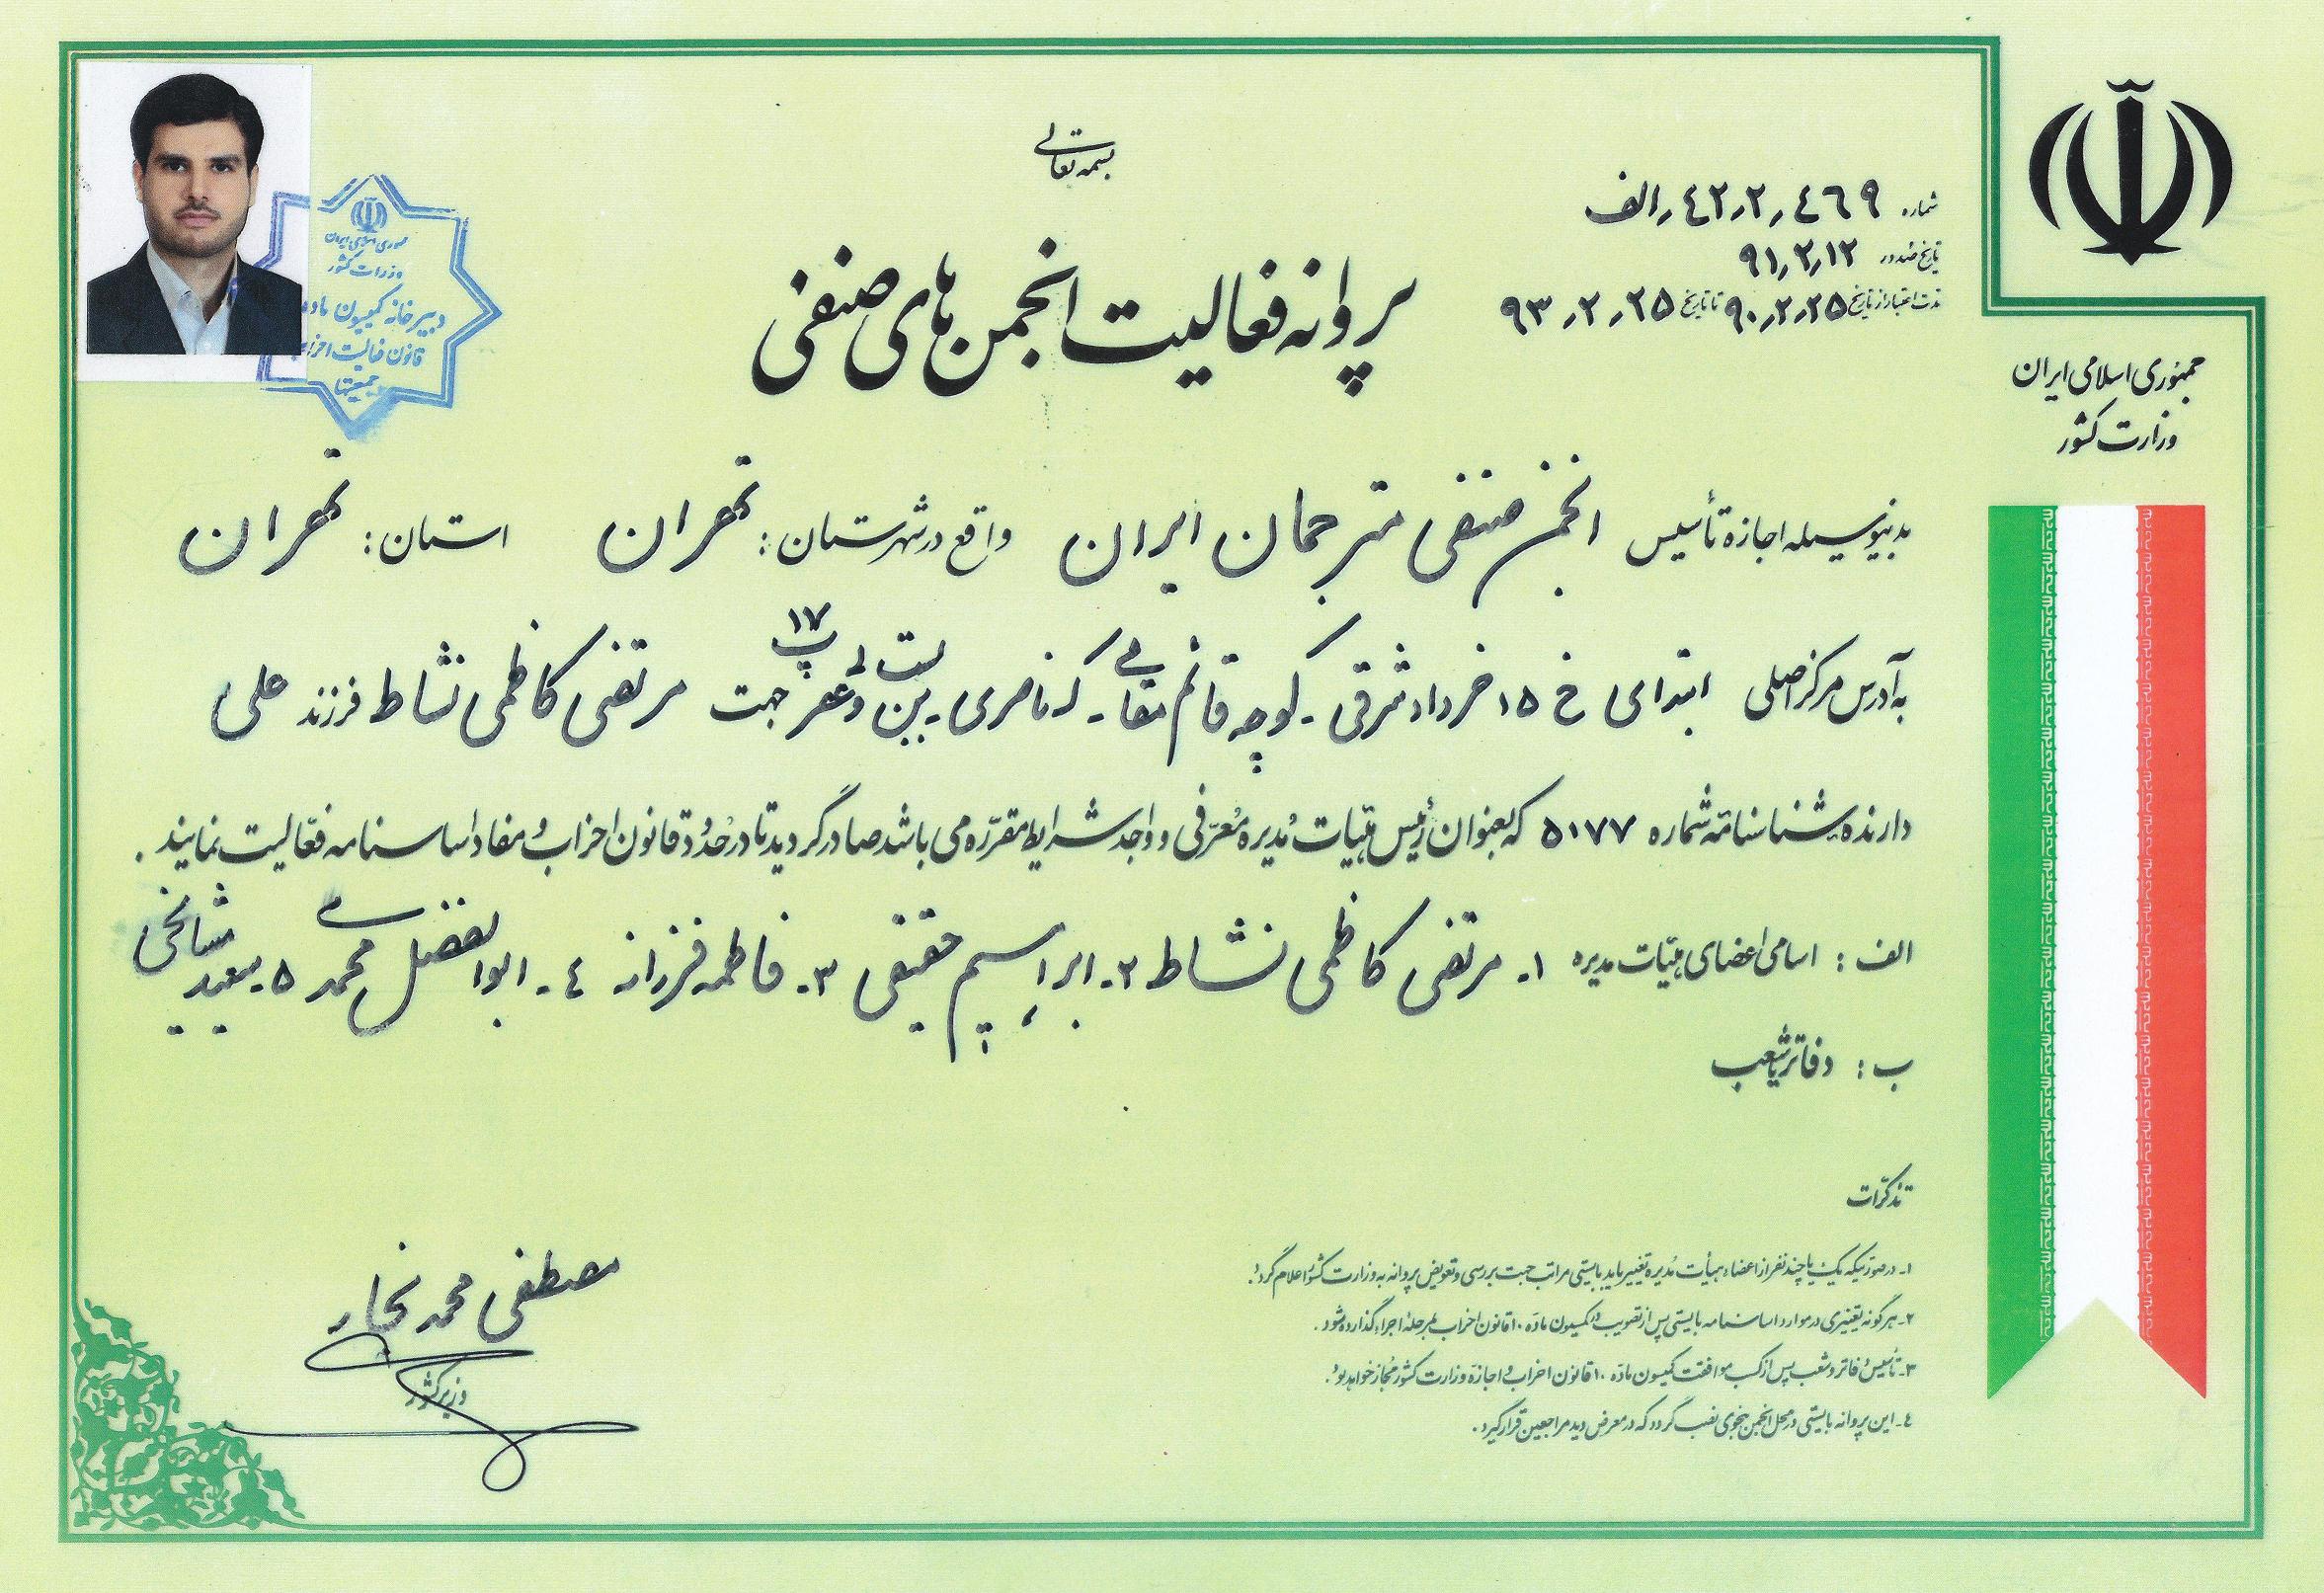 بسمه تعالی
شماره ۴۶۹/۲/۴۲/الف
تاریخ صدور ۹۱/۲/۱۲
مدت اعتبار از تاریخ ۹۰/۲/۲۵ تا تاریخ ۹۳/۲/۲۵
جمهوری اسلامی ایران
وزارت کشور
پروانه فعالیت انجمن های صنفی
جمهوری اسلامی ایران
وزارت کشور
دبیرخانه کمیسیون ماده
قانون فعالیت احزاب
جمعیتها
بدینوسیله اجازه تأسیس انجمن صنفی مترجمان ایران واقع در شهرستان: تهران استان: تهران
به آدرس مرکز اصلی ابتدای خ ۱۵ خرداد شرقی - کوچه قائم مقامی - ک ناصری - بن پ ۱۷ جهت مرتضی کاظمی نشاط فرزند علی
دارنده شناسنامه شماره ۵۱۷۷ که بعنوان رئیس هیئات مدیره معرفی و واجد شرایط مقرره می باشد صادر گردید تا در حدود قانون احزاب و مفاد اساسنامه فعالیت نمایند.
الف: اسامی اعضای هیئات مدیره ۱- مرتضی کاظمی نشاط ۲- ابراهیم حقیقی ۳- فاطمه فرزانه ۴- ابوالفضل محمدی ۵- سعید
ب: دفاتر یا شعب
تذکرات
۱- در صورتیکه یک یا چند نفر از اعضاء هیأت مدیره تغییر یابد بایستی مراتب جهت بررسی و تعویض پروانه به وزارت کشور اعلام گردد.
۲- هرگونه تغییری در موارد اساسنامه بایستی پس از تصویب در کمیسیون ماده ۱۰ قانون احزاب بمرحله اجراء گذارده شود.
۳- تأسیس دفاتر و شعب پس از کسب موافقت کمیسیون ماده ۱۰ قانون احزاب و اجازه وزارت کشور مجاز خواهد بود.
۴- این پروانه بایستی در محل انجمن بنحوی نصب گردد که در معرض دید مراجعین قرار گیرد.
مصطفی محمد نجار
وزیر کشور